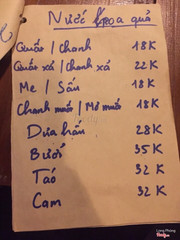 Nước hoa quả
Quất / chanh 18K
Quất xả / chanh xả 22K
Me / Sấu 18K
Chanh muối / Mơ muối 18K
Dưa hấu 28K
Bưởi 35K
Táo 32K
Cam 32K